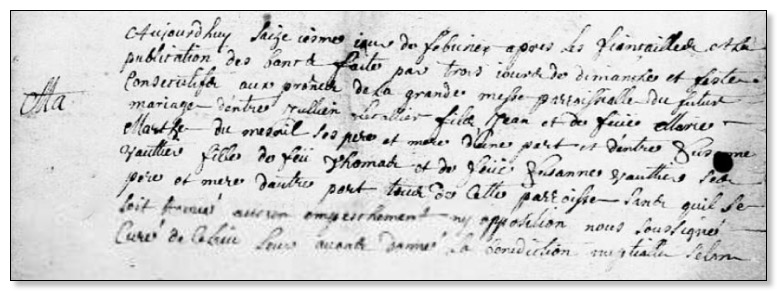 Aujourdhuy saize iesme iour de febvrier apres les fiancailles et la
publication des bans faite par trois iours de dimanche et feste
Ma
Consecutifs aux prones de la grande messe parroissialle du futur
mariage dentre Jullien filz Jean et de feue Marie
Marthe du mesnil ses pere et mere dune part et dentre Susanne
vauttier fille de feu Thomas et de Susanne vauttier ses
pere et mere dautre part tous de cette parroisse sans quil se
soit trouvé aucun empeschement ny opposition nous soussigné
Curé de leurs avons donné la benediction nuptialle selon